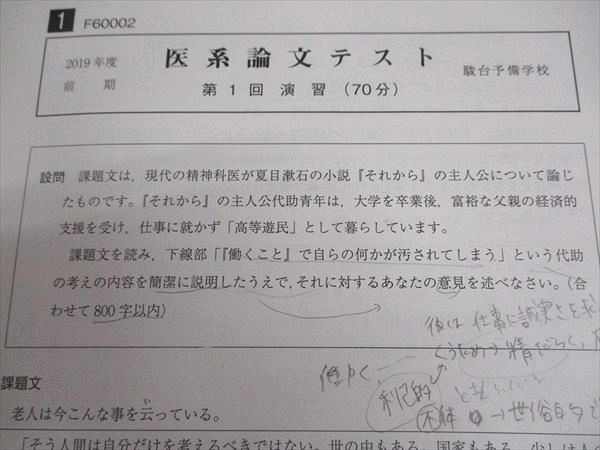 1 F60002
2019年度
前 期
医系論文テスト
第1回 演習 (70分)
駿台予備学校
設問 課題文は,現代の精神科医が夏目漱石の小説『それから』の主人公について論じ
たものです。『それから』の主人公代助青年は,大学を卒業後,富裕な父親の経済的
支援を受け,仕事に就かず「高等遊民」として暮らしています。
課題文を読み,下線部「『働くこと』で自らの何かが汚されてしまう」という代助
の考えの内容を簡潔に説明したうえで,それに対するあなたの意見を述べなさい。(合
わせて800字以内)
彼は 仕事に誠実さを求
働く
利己的
課題文
老人は今こんな事を云っている。
「そう人間は自分だけを考えるべきではない。世の中もある。国家もある。少しは人